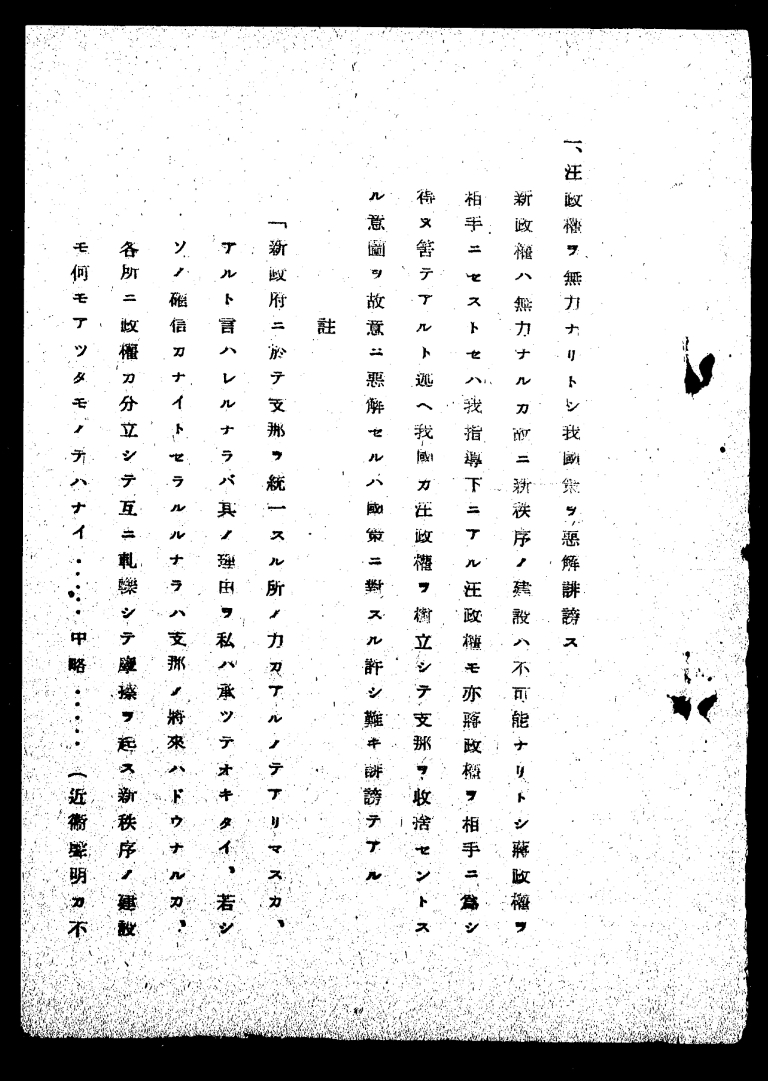 一、汪政權ヲ無力ナリトシ我國策ヲ惡解誹謗ス
新政權ハ無力ナルカ故ニ新秩序ノ建設ハ不可能ナリトシ蔣政權ヲ
相手ニセストセハ我指導下ニアル汪政權モ亦蔣政權ヲ相手ニ爲シ
得ヌ筈テアルト述ヘ我國カ汪政權ヲ樹立シテ支那ヲ收捨セントス
ル意圖ヲ故意ニ惡解セルハ國策ニ對スル許シ難キ誹謗テアル
註
「新政府ニ於テ支那ヲ統一スル所ノ力カアルノテアリマスカ、
アルト言ハレルナラバ其ノ理由ヲ私ハ承ツテオキタイ、若シ
ソノ確信カナイトセラルルナラハ支那ノ將來ハドウナルカ、
各所ニ政權カ分立シテ互ニ軋轢シテ摩擦ヲ起ス新秩序ノ建設
モ何モアツタモノテハナイ……中略……(近衞聲明カ不